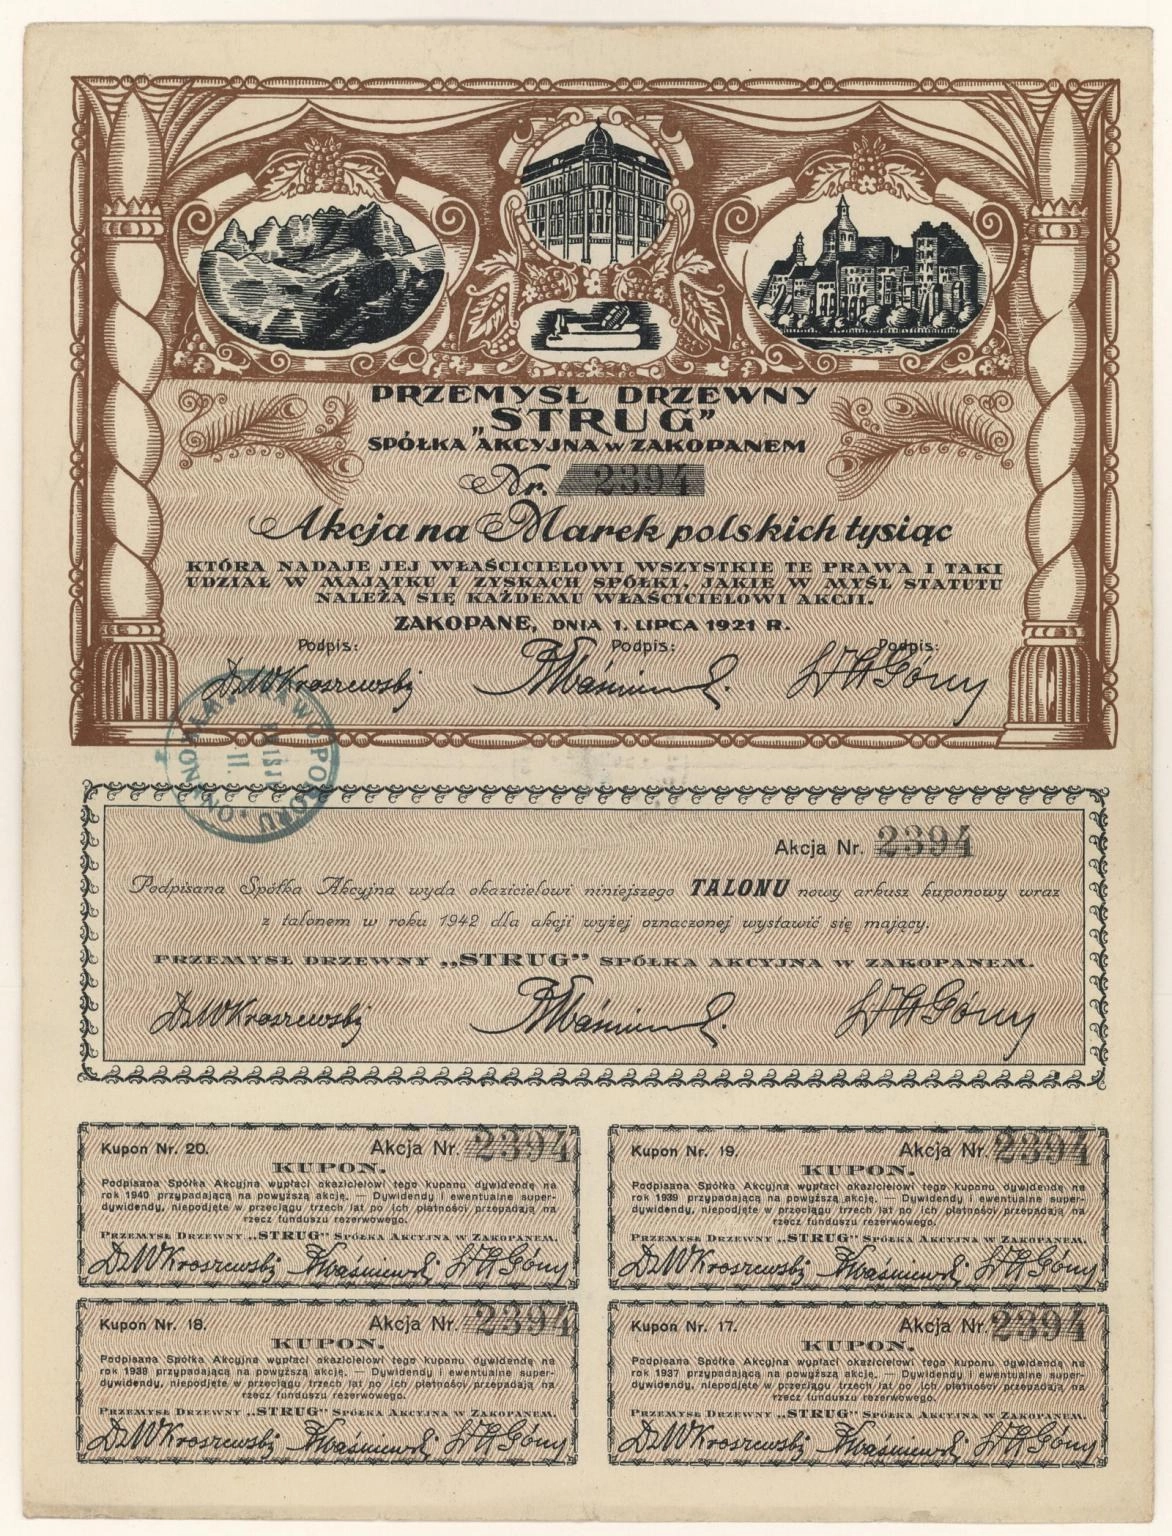 PRZEMYSŁ DRZEWNY
„STRUG”
SPÓŁKA AKCYJNA W ZAKOPANEM
Nr. 2394
Akcja na Marek polskich tysiąc
KTÓRA NADAJE JEJ WŁAŚCICIELOWI WSZYSTKIE TE PRAWA I TAKI
UDZIAŁ W MAJĄTKU I ZYSKACH SPÓŁKI, JAKIE W MYŚL STATUTU
NALEŻĄ SIĘ KAŻDEMU WŁAŚCICIELOWI AKCJI.
ZAKOPANE, DNIA 1. LIPCA 1921 R.
Podpis: Podpis: Podpis:
PRAWO POBORU WYKONANO
II.
Akcja Nr. 2394
Podpisana Spółka Akcyjna wyda okazicielowi niniejszego TALONU nowy arkusz kuponowy wraz
z talonem w roku 1942 dla akcji wyżej oznaczonej wystawić się mający.
PRZEMYSŁ DRZEWNY „STRUG” SPÓŁKA AKCYJNA W ZAKOPANEM.
Kupon Nr. 20. Akcja Nr. 2394
KUPON.
Podpisana Spółka Akcyjna wypłaci okazicielowi tego kuponu dywidendę na
rok 1940 przypadającą na powyższą akcję. — Dywidendy i ewentualne super-
dywidendy, niepodjęte w przeciągu trzech lat po ich płatności przepadają na
rzecz funduszu rezerwowego.
PRZEMYSŁ DRZEWNY „STRUG” SPÓŁKA AKCYJNA W ZAKOPANEM.
Kupon Nr. 19. Akcja Nr. 2394
KUPON.
Podpisana Spółka Akcyjna wypłaci okazicielowi tego kuponu dywidendę na
rok 1939 przypadającą na powyższą akcję. — Dywidendy i ewentualne super-
dywidendy, niepodjęte w przeciągu trzech lat po ich płatności przepadają na
rzecz funduszu rezerwowego.
PRZEMYSŁ DRZEWNY „STRUG” SPÓŁKA AKCYJNA W ZAKOPANEM.
Kupon Nr. 18. Akcja Nr. 2394
KUPON.
Podpisana Spółka Akcyjna wypłaci okazicielowi tego kuponu dywidendę na
rok 1938 przypadającą na powyższą akcję. — Dywidendy i ewentualne super-
dywidendy, niepodjęte w przeciągu trzech lat po ich płatności przepadają na
rzecz funduszu rezerwowego.
PRZEMYSŁ DRZEWNY „STRUG” SPÓŁKA AKCYJNA W ZAKOPANEM.
Kupon Nr. 17. Akcja Nr. 2394
KUPON.
Podpisana Spółka Akcyjna wypłaci okazicielowi tego kuponu dywidendę na
rok 1937 przypadającą na powyższą akcję. — Dywidendy i ewentualne super-
dywidendy, niepodjęte w przeciągu trzech lat po ich płatności przepadają na
rzecz funduszu rezerwowego.
PRZEMYSŁ DRZEWNY „STRUG” SPÓŁKA AKCYJNA W ZAKOPANEM.